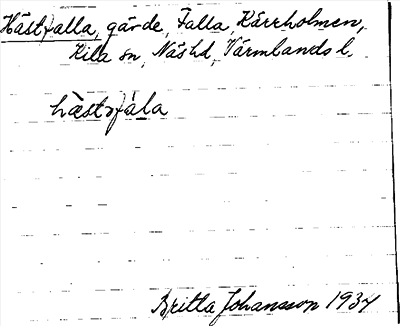 Hästfalla, gärde, Falla, Kärrholmen,
Kila sn, Näs hd, Värmlands l.
hæ̀stɔfála
Britta Johansson 1934